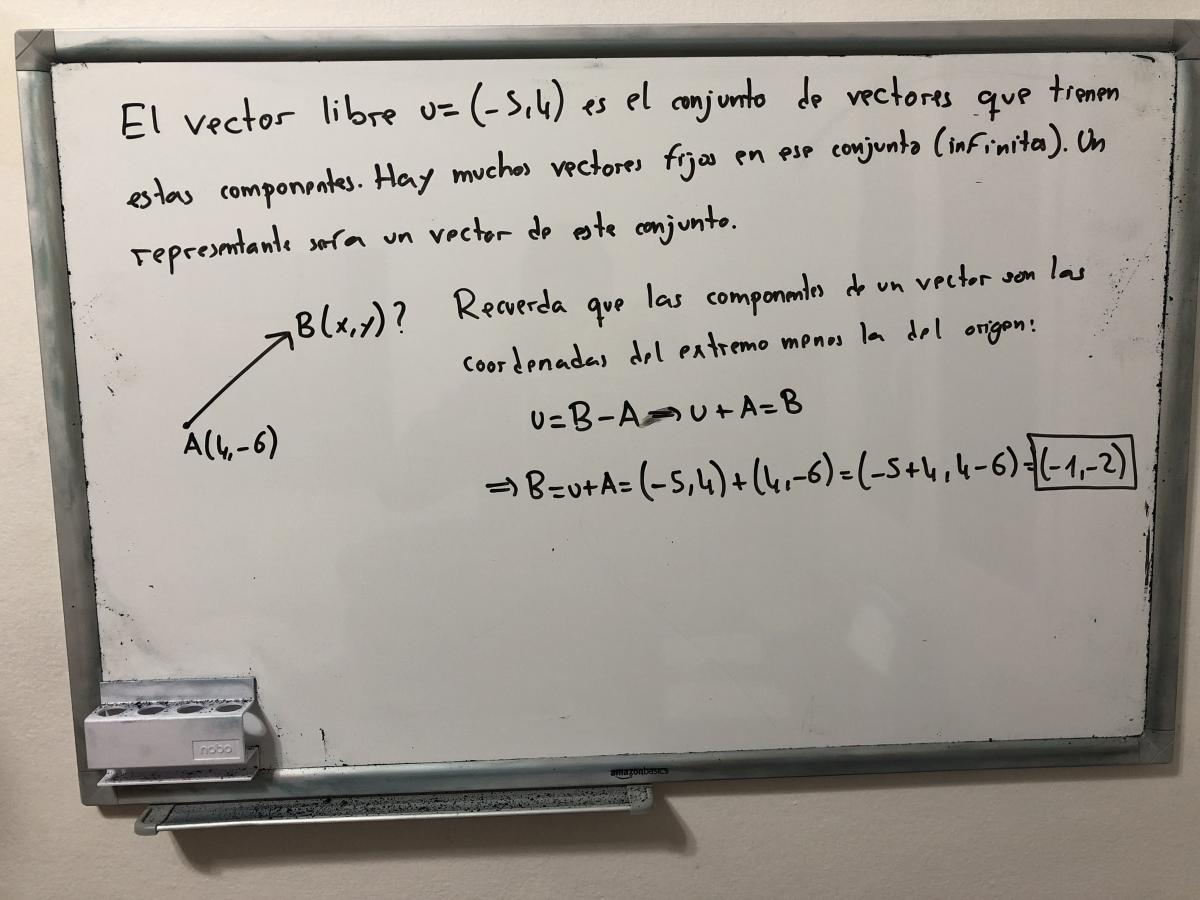 El vector libre u=(-5,4) es el conjunto de vectores que tienen
estas componentes. Hay muchos vectores fijos en ese conjunto (infinitos). Un
representante sería un vector de este conjunto.
B(x,y)?
A(4,-6)
Recuerda que las componentes de un vector son las
coordenadas del extremo menos la del origen:
u=B-A⇒u+A=B
⇒B=u+A=(-5,4)+(4,-6)=(-5+4,4-6)=(-1,-2)
nobo
amazonbasics